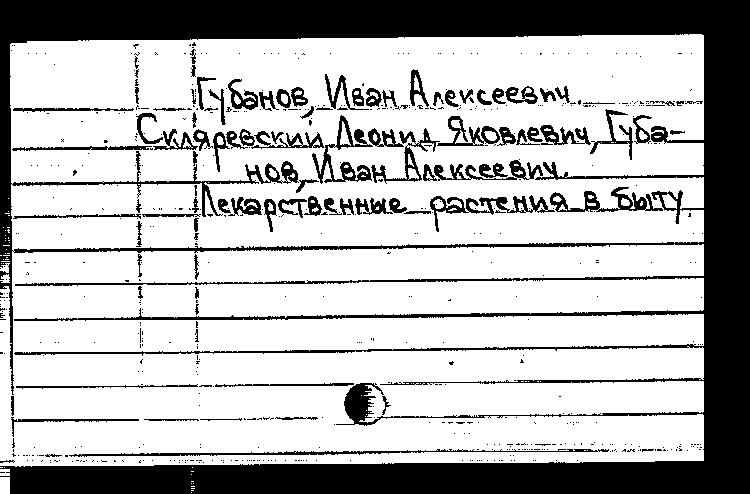 Губанов, Иван Алексеевич.
Скляревский, Леонид Яковлевич, Губа-
нов, Иван Алексеевич.
Лекарственные растения в быту.